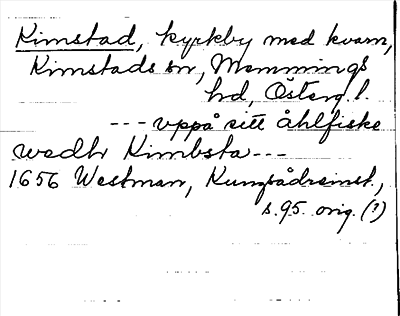 Kimstad, kyrkby med kvarn,
Kimstads sn, Memmings
hd, Österg.l.
--- uppå sitt åhlfiske
wedh Kimbsta ---
1656 Westman, Kungsådreinst.,
s. 95. orig. (?)